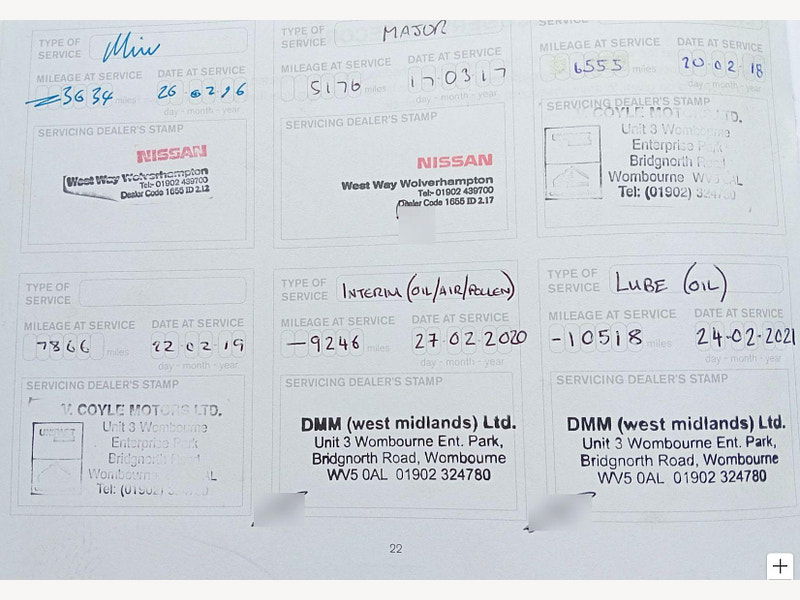 TYPE OF SERVICE
MILEAGE AT SERVICE DATE AT SERVICE
3634 miles 26 02 16
day - month - year
SERVICING DEALER'S STAMP
NISSAN
West Way Wolverhampton
Tel:- 01902 439700
Dealer Code 1655 ID 2.12
TYPE OF SERVICE MAJOR
MILEAGE AT SERVICE DATE AT SERVICE
5176 miles 17 03 17
day - month - year
SERVICING DEALER'S STAMP
NISSAN
West Way Wolverhampton
Tel:- 01902 439700
Dealer Code 1655 ID 2.17
SERVICE
MILEAGE AT SERVICE DATE AT SERVICE
6555 miles 20 02 18
day - month - year
SERVICING DEALER'S STAMP
COYLE MOTORS LTD.
Unit 3 Wombourne
Enterprise Park
Bridgnorth Road
Wombourne
Tel: (01902)
TYPE OF SERVICE
MILEAGE AT SERVICE DATE AT SERVICE
7866 miles 22 02 19
day - month - year
SERVICING DEALER'S STAMP
V. COYLE MOTORS LTD.
Unit 3 Wombourne
Enterprise Park
Bridgnorth Road
Wombourne
Tel: (01902)
TYPE OF SERVICE INTERIM (OIL/AIR/POLLEN)
MILEAGE AT SERVICE DATE AT SERVICE
-9246 miles 27 02 2020
day - month - year
SERVICING DEALER'S STAMP
DMM (west midlands) Ltd.
Unit 3 Wombourne Ent. Park,
Bridgnorth Road, Wombourne
WV5 0AL 01902 324780
TYPE OF SERVICE LUBE (OIL)
MILEAGE AT SERVICE DATE AT SERVICE
-10518 miles 24-02-2021
day - month - year
SERVICING DEALER'S STAMP
DMM (west midlands) Ltd.
Unit 3 Wombourne Ent. Park,
Bridgnorth Road, Wombourne
WV5 0AL 01902 324780
22